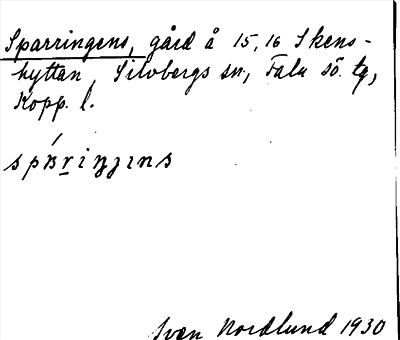 Sparringens, gård å 15, 16 Skens-
hyttan, Silvbergs sn, Falu sö. tg,
Kopp. l.
spáriŋŋɩns
Sven Nordlund 1930